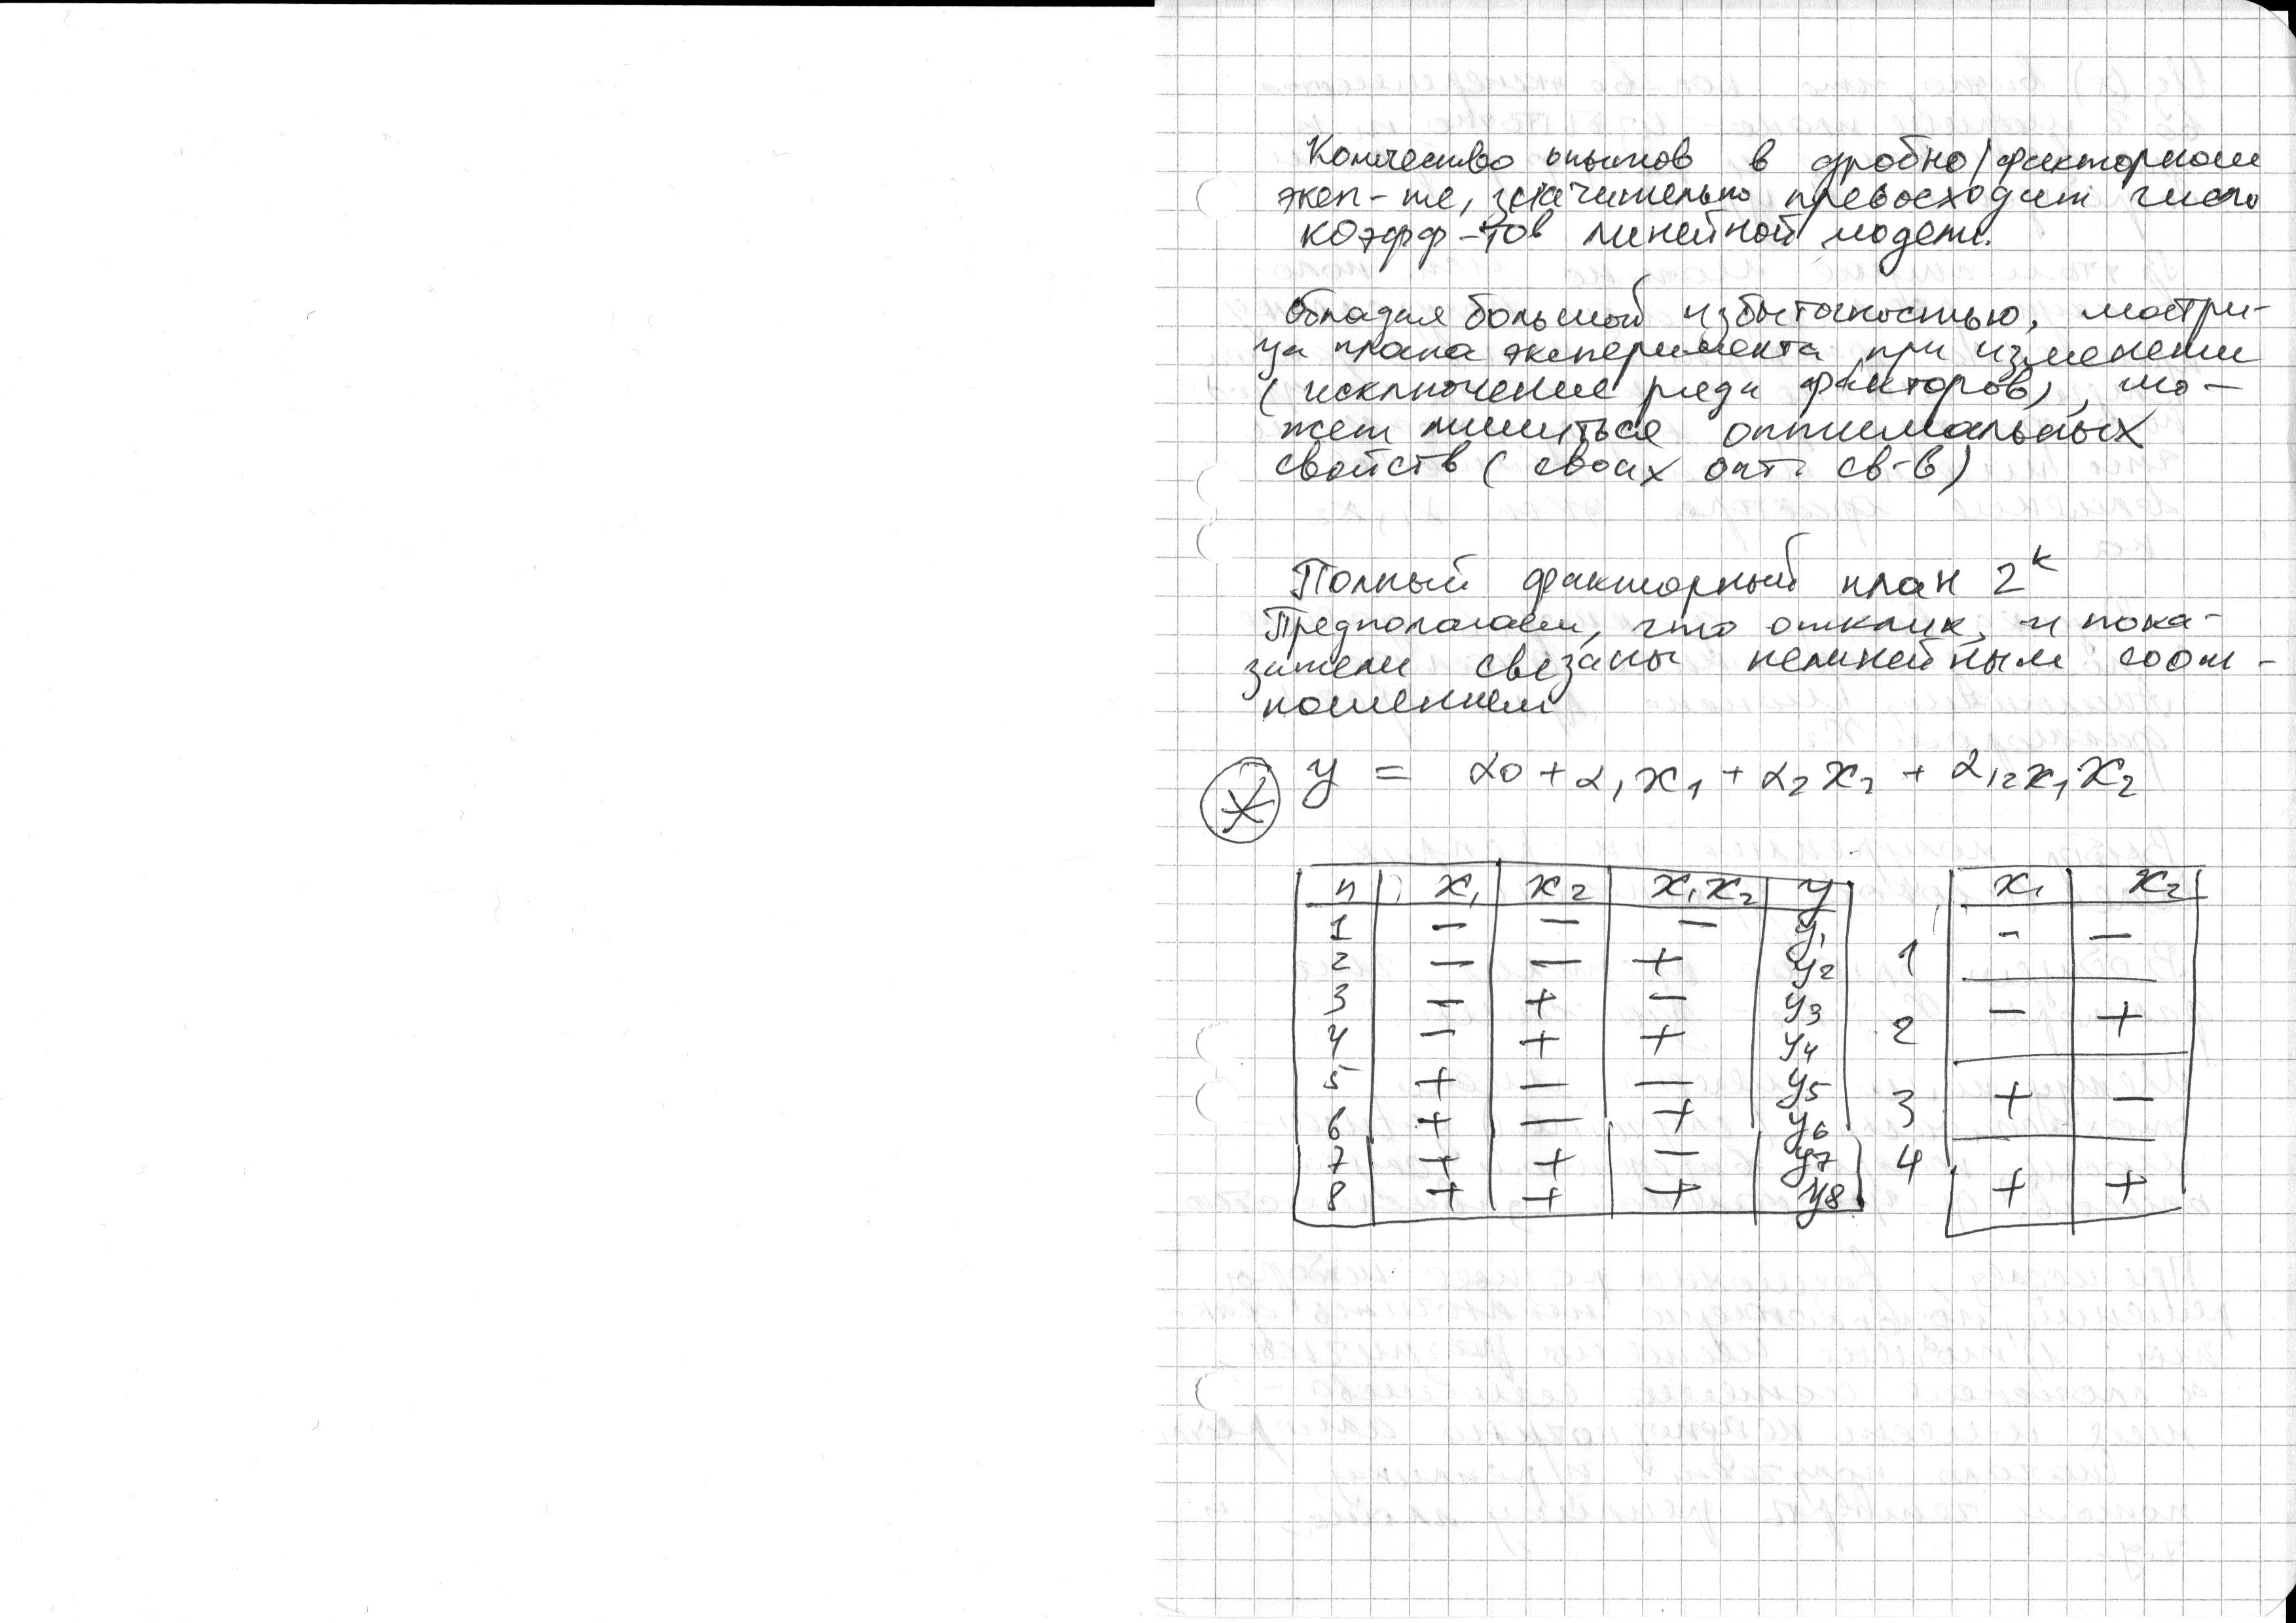 Количество опытов в дробно/факторном
эксп-те, значительно превосходит число
коэфф-тов линейной модели.
Обладая большой избыточностью, матри-
ца плана эксперимента при изменении
(исключение ряда факторов), мо-
жет лишиться оптимальных
свойств (своих опт. св-в)
Полный факторный план 2^k
Предполагаем, что отклик и пока-
затели связаны нелинейным соот-
ношением
* y = α0 + α1x1 + α2x2 + α12x1x2
n x1 x2 x1x2 y
1 − − − y1
2 − − + y2
3 − + − y3
4 − + + y4
5 + − − y5
6 + − + y6
7 + + − y7
8 + + + y8
x1 x2
1 − −
2 − +
3 + −
4 + +